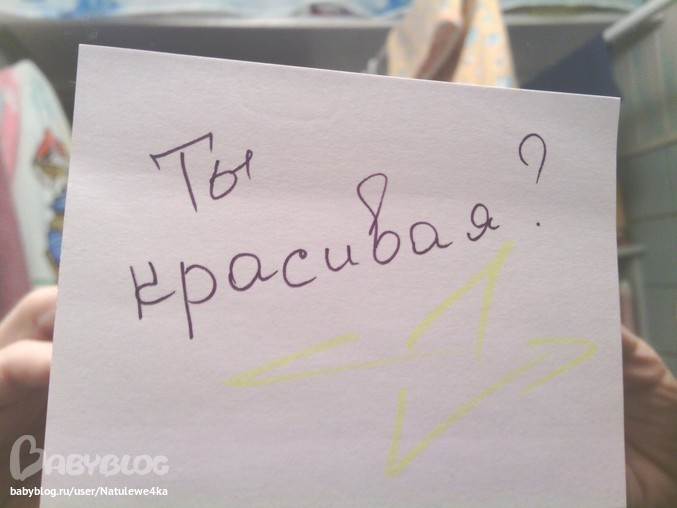 Ты
красивая?
BABYBLOG
babyblog.ru/user/Natulewe4ka